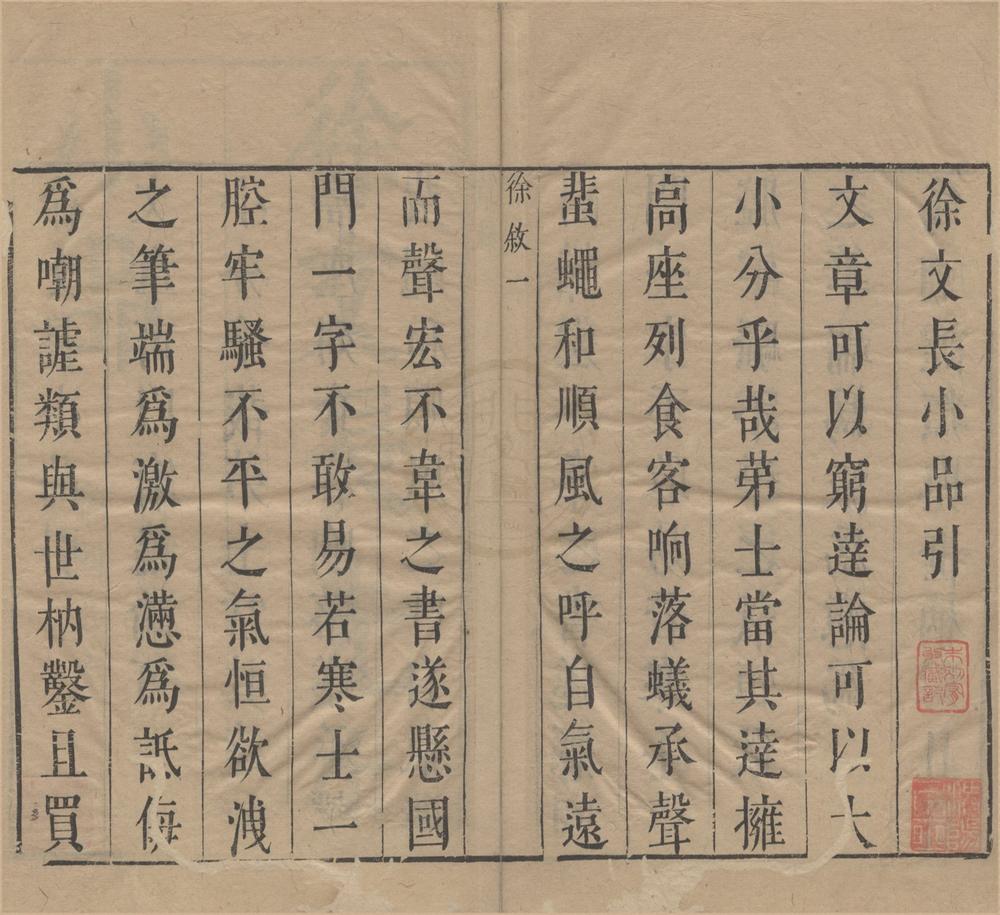 徐文長小品引
文章可以窮達論可以大
小分乎哉苐士當其達擁
高座列食客响落蟻承聲
蜚蠅和順風之呼自氣遠
徐敘一
而聲宏不韋之書遂懸國
門一字不敢易若寒士一
腔牢騷不平之氣恒欲洩
之筆端爲激爲懣爲詆侮
爲嘲謔類與世枘鑿且買